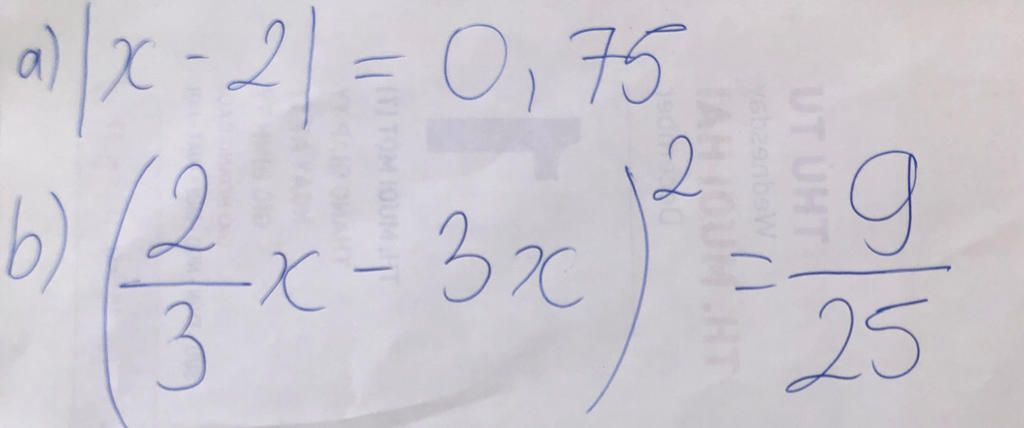 a) |x - 2| = 0,75
b) (2/3 x - 3x)² = 9/25